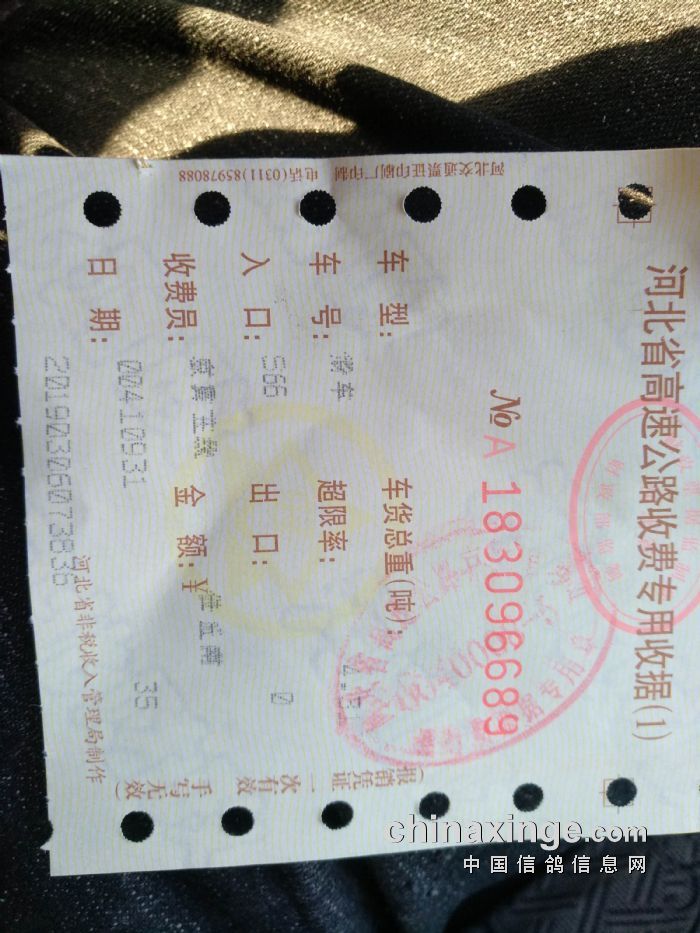 河北省高速公路收费专用收据(1)
№ A 183096689
车型: 车货总重(吨):
车号: 客车 超限率:
入口: S66 出口: 0
收费员: 金额:¥ 35
日期: 00410931
20190306073836
河北省非税收入管理局制作
(报销凭证 一次有效 手写无效)
河北交通票证印刷厂印制 电话(0311)85978088
chinaxinge.com
中国信鸽信息网